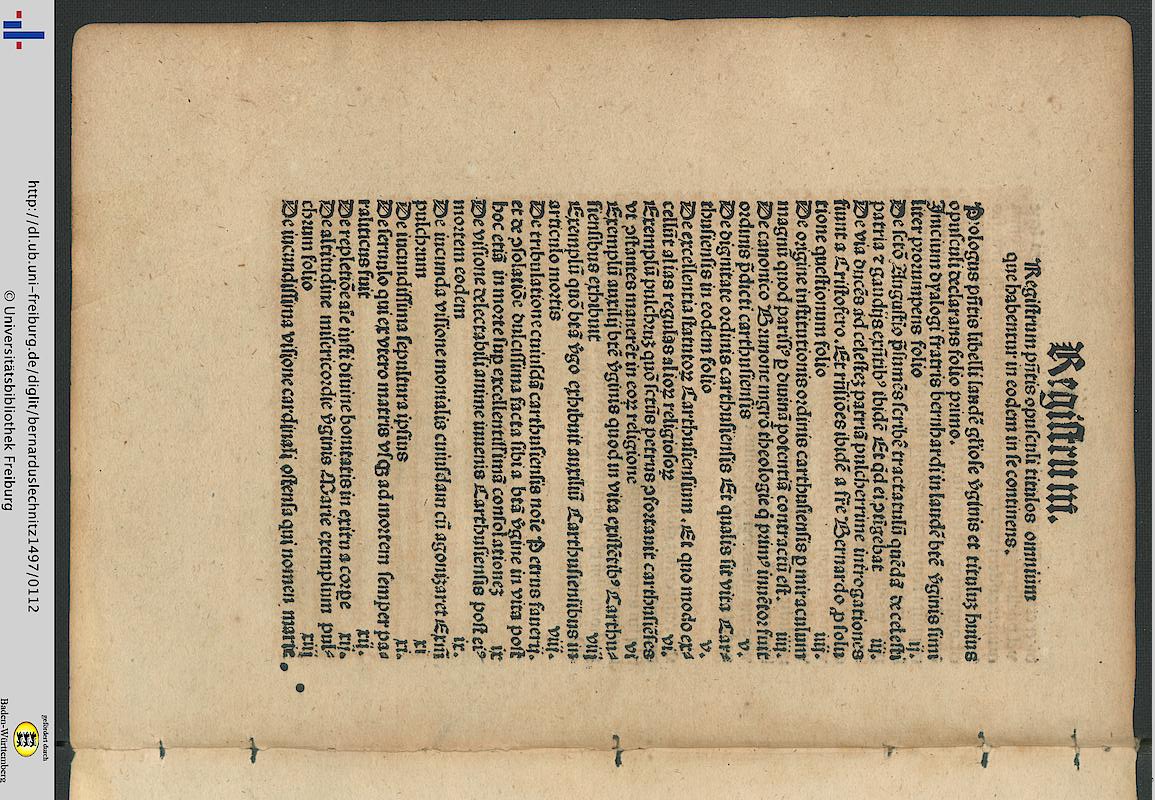 Registrum.
Registrum pñtis opusculi titulos omnium
que habentur in eodem in se continens.
Prologus pñtis libelli laudē gl'iose v̄ginis et titulus huius
opusculi declarans folio primo.
Inicium dyalogi fratris bernhardi in laudē btē v̄ginis simi
liter prorumpens folio ij.
De sctō Augustino
patria ⁊ gaudijs ibidē Et qd ei ꝯtigebat iij.
De via ducēs ad celestez patriā pulcherrime introgationes
fiunt a Cristofero. Et risiōes ibidē a frē Bernardo ꝓ solu
tione questionum folio iiij.
De origine institutionis ordinis carthusiensis ꝑ miraculum
magnū quod parisiꝰ ꝑ diuinā potentiā contractū est iiij.
De canonico Brunone theologie
ordinis p̄dicti carthusiensis v.
De dignitate ordinis carthusiensis Et qualis sit vita Car⸗
thusiensis in eodem folio v.
De excellentia statutoꝝ Carthusiensium. Et quo modo ex⸗
cellūt alias regulas alioꝝ religiosoꝝ vi.
Exemplū pulchruꝫ quō sctūs petrus ꝯfortauit carthusiēses
vt ꝯstantes manerēt in eoꝝ religione vi
Exemplū auxilij btē v̄ginis quod in vita existētibꝰ Carthu⸗
siensibus exhibuit vij
Exemplū quō btā v̄go exhibuit auxiliū Carthusiensibus in
articulo mortis viij.
De tribulatione cuiusdā carthusiensis noīe Petrus fauerij.
et de ꝯsolatiōe dulcissima facta sibi a btā v̄gine in vita post
hoc etiā in morte sup excellentissimā consolationez ix
De visione delectabili anime iuuenis Carthusiensis post eiꝰ
mortem eodem ix.
De iucunda visione monialis cuiusdam cū agonizaret Exm̄
pulchrum xi
De iucundissima sepultura ipsius xi.
De scrupulo qui ex vtero matris vsqꝫ ad mortem semper pa⸗
raliticus fuit xij.
De repletiōe aīe iusti diuine bonitatis in exitu a corpe xij.
De altitudine misericordie v̄ginis Marie exemplum pul⸗
chrum folio xiij
De iucundissima visione cardinali ostensa qui nomen marie.
http://dl.ub.uni-freiburg.de/diglit/bernarduslechnitz1497/0112
© Universitätsbibliothek Freiburg
gefördert durch
Baden-Württemberg